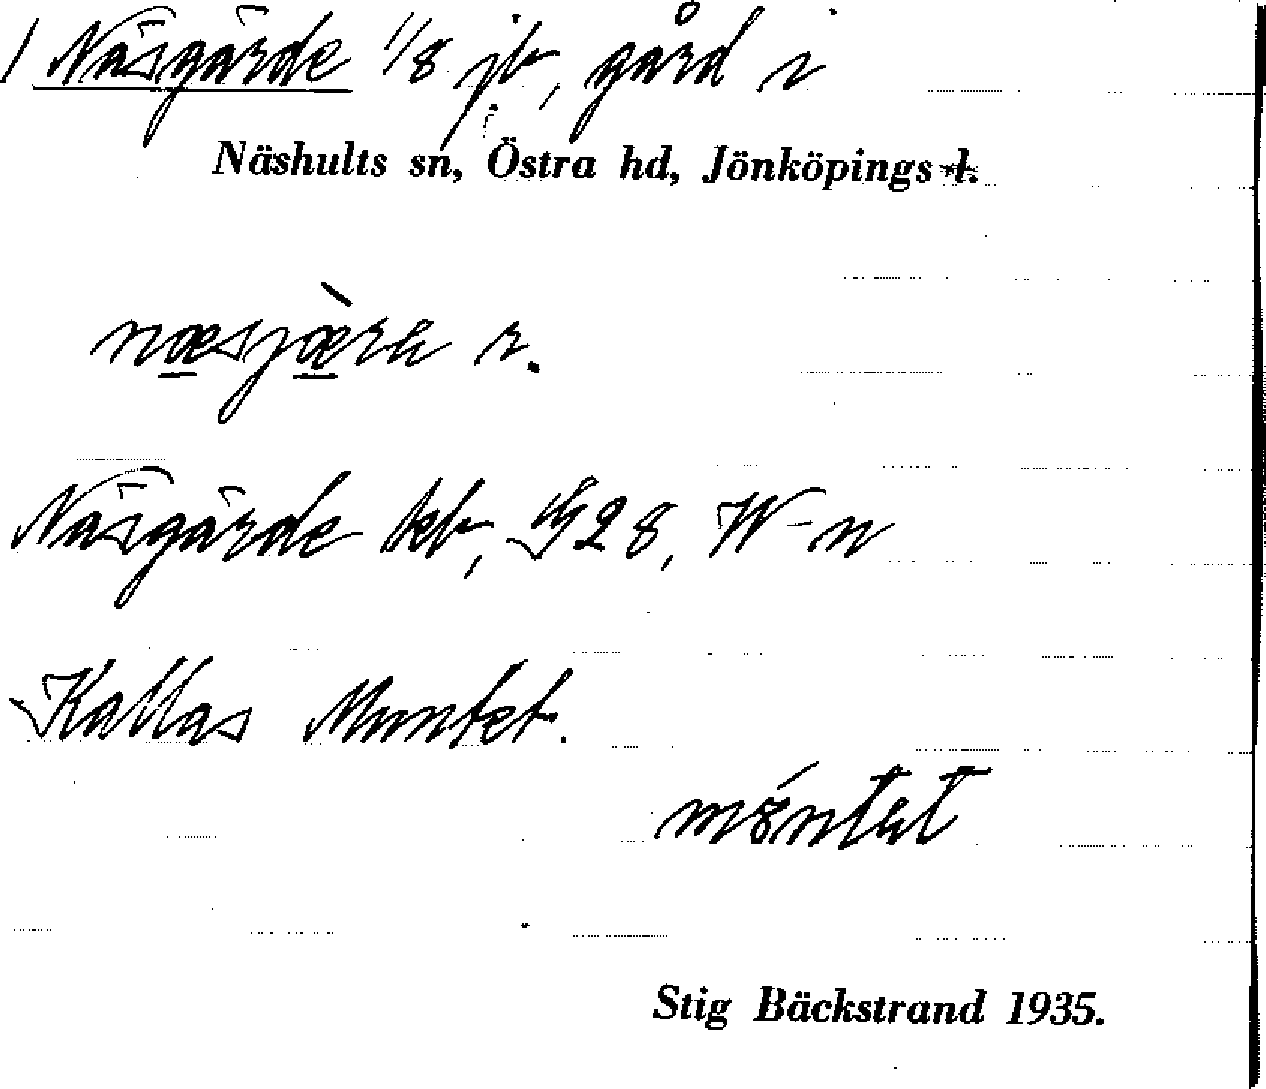 / Näsgärde 1/8 jb, gård i
Näshults sn, Östra hd, Jönköpings l.
næsjæ̀ra r.
Näsgärde kb, G28, W-n
Kallas Muntet.
Stig Bäckstrand 1935.